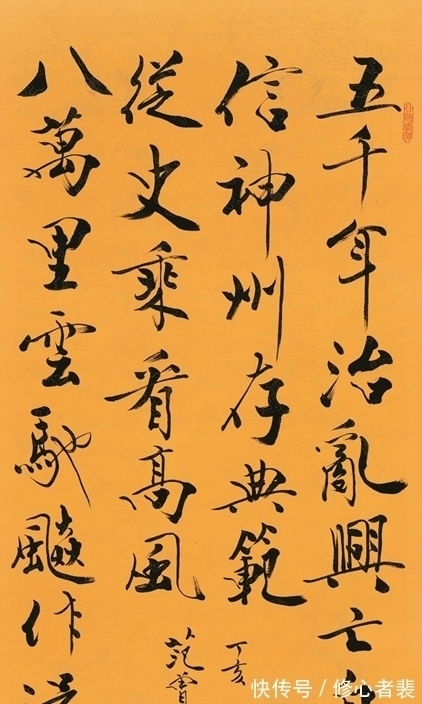 五千年治亂興亡
信神州存典範
丁亥
八萬里雲馳飈作
從史乘看高風
范曾
快传号 / 修心者裴